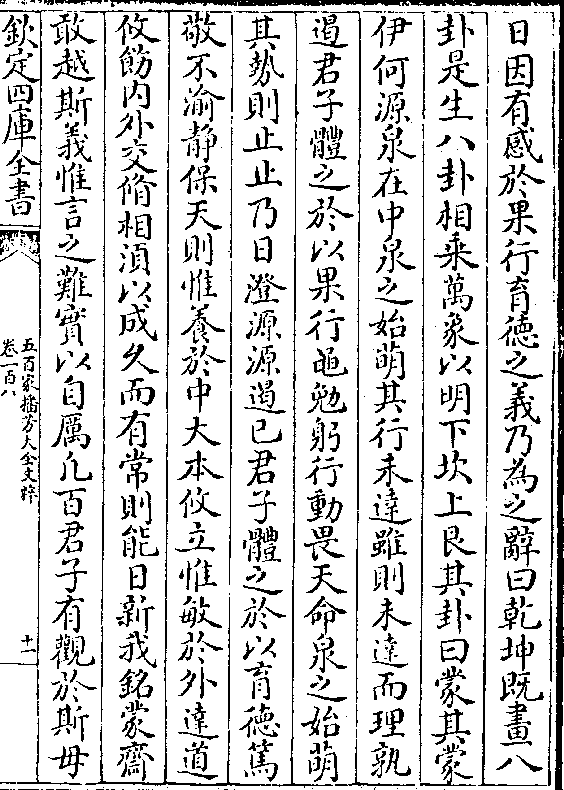 日因有感於果行育徳之義乃為之辭曰乾坤既畫八
卦是生八卦相乗萬象以明下坎上艮其卦曰蒙其蒙
伊何源泉在中泉之始萌其行未達雖則未達而理孰
遏君子體之於以果行黽勉躬行動畏天命泉之始萌
其勢則止止乃日澄源源遏已君子體之於以育徳篤
敬不渝静保天則惟養於中大本攸立惟敏於外達道
攸飭内外交脩相湏以成久而有常則能日新我銘蒙齋
敢越斯義惟言之難實以自厲凡百君子有觀於斯毋
欽定四庫全書
五百家播芳大全文粹
卷一百八
十一